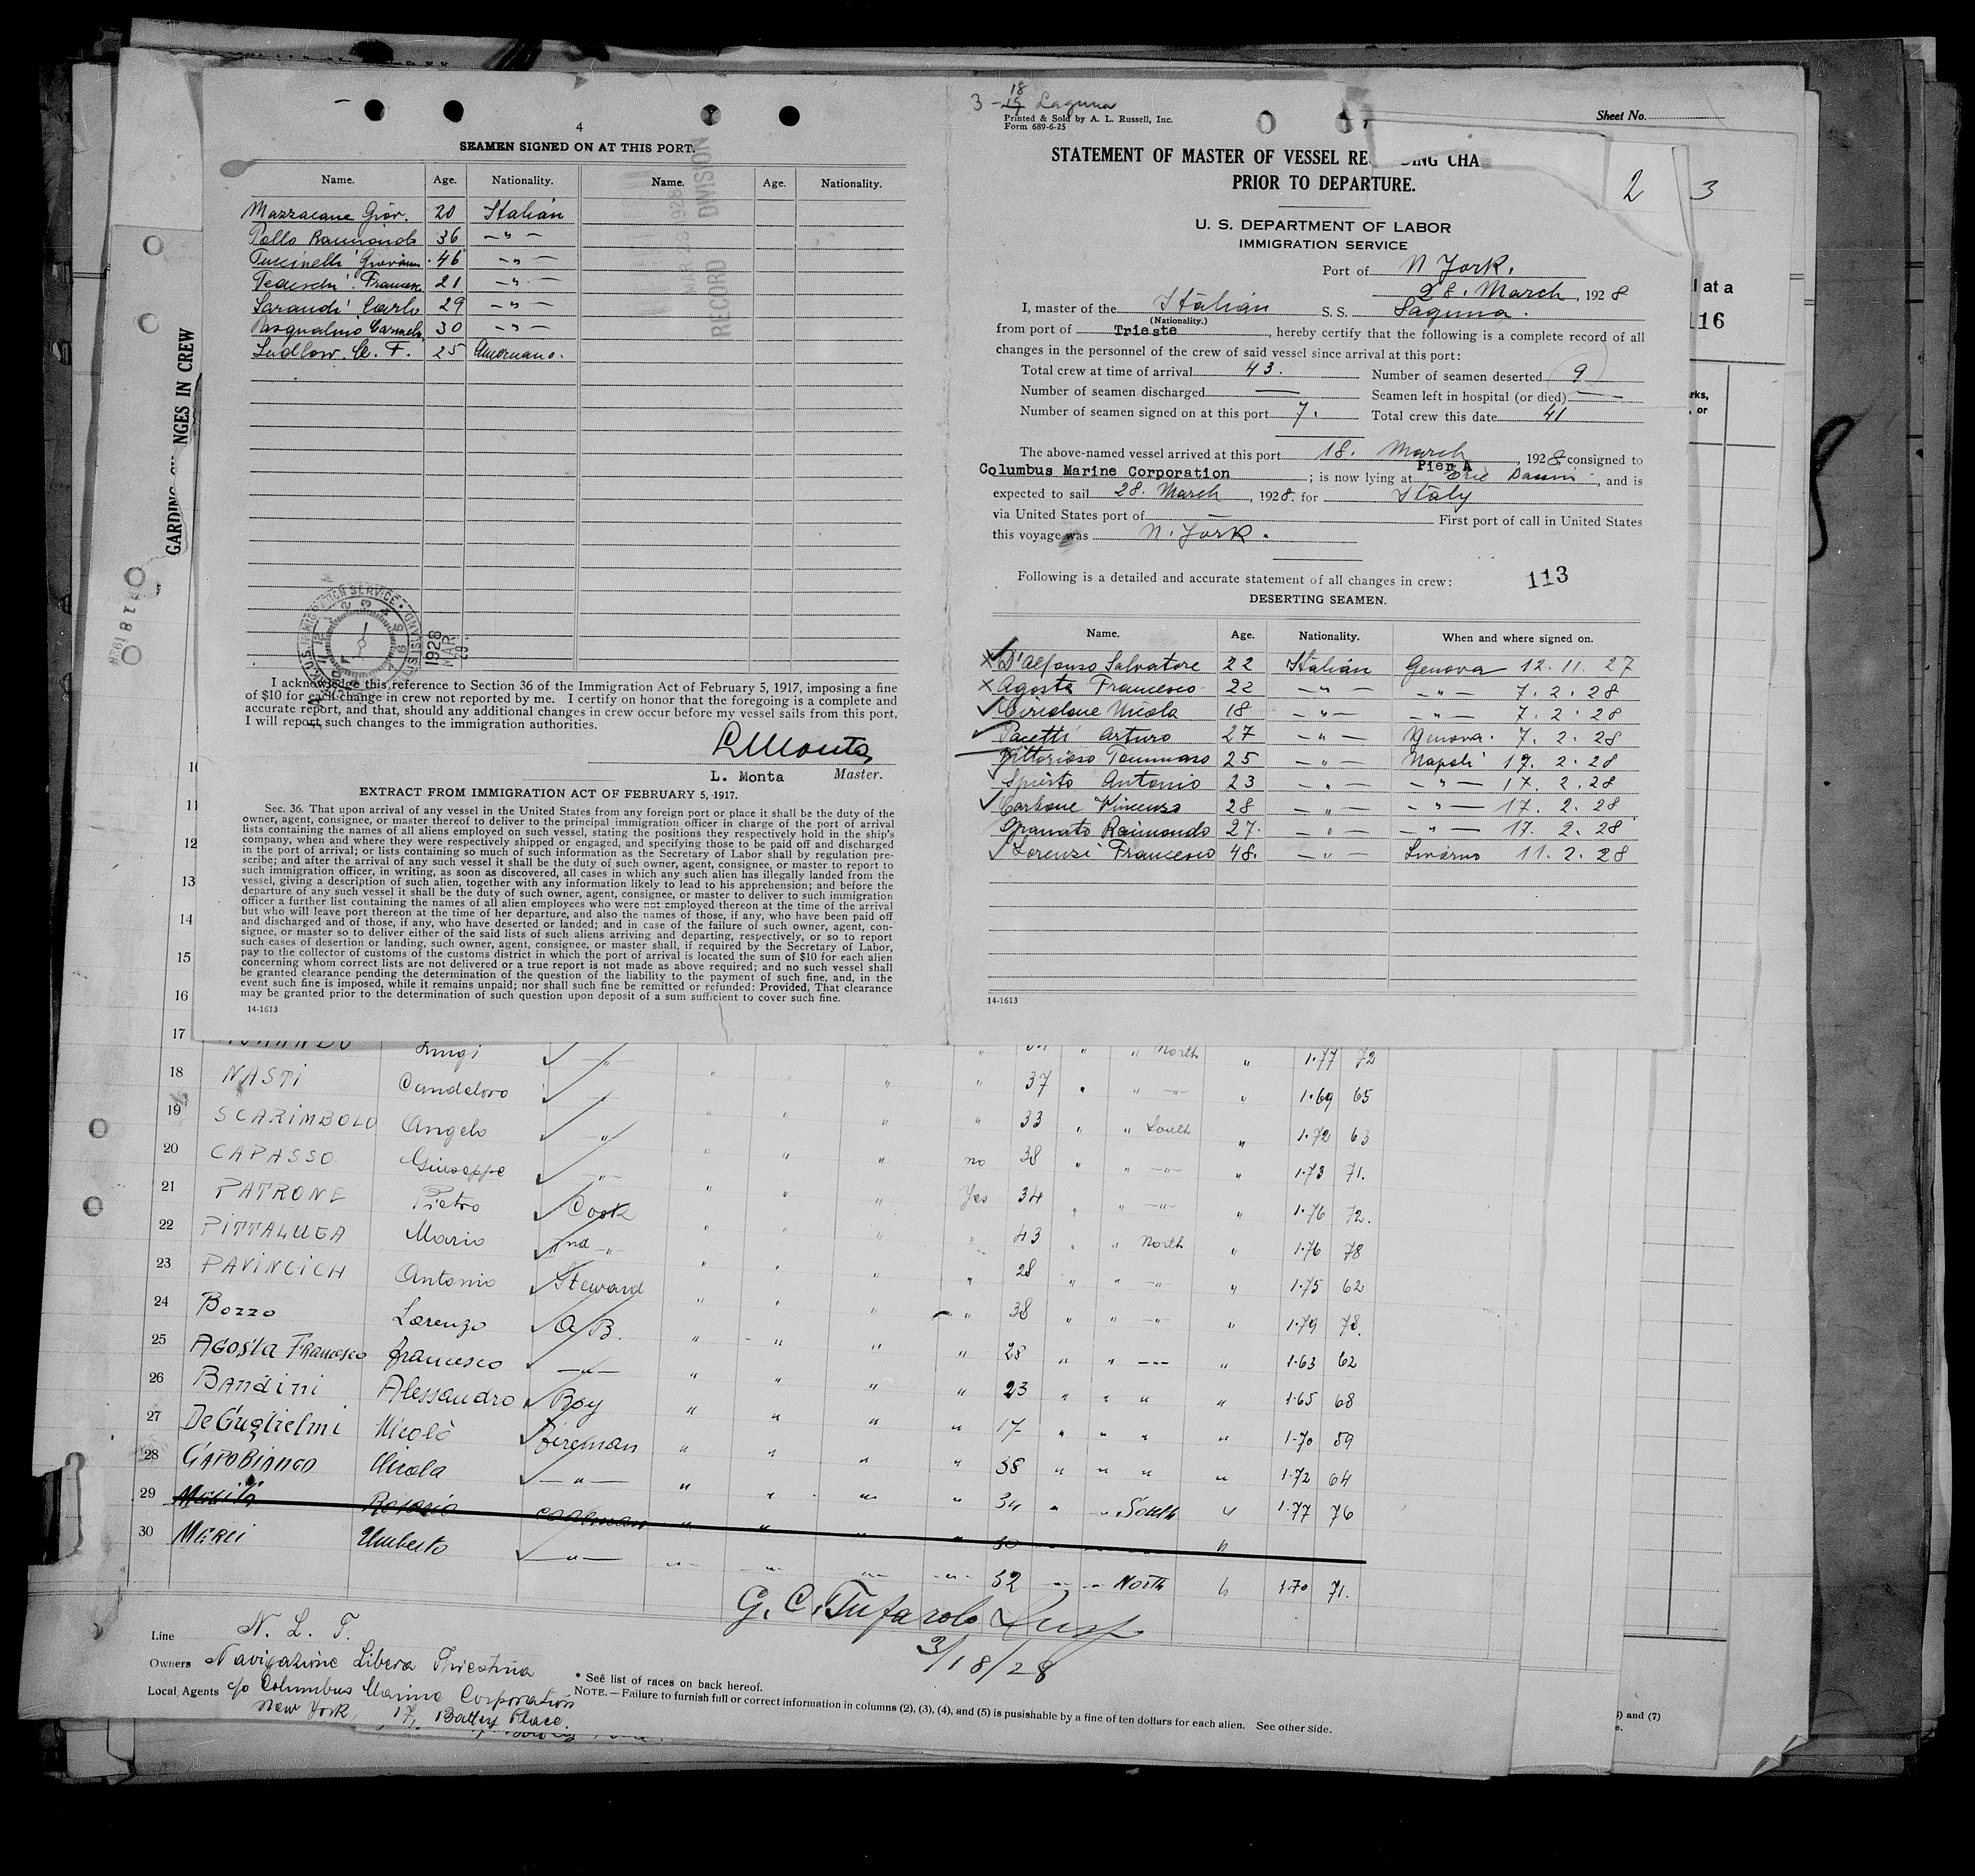 4
SEAMEN SIGNED ON AT THIS PORT.
Name. Age. Nationality. Name. Age. Nationality.
Mazzacane Giov. 20 Italian
Pollo Raimondo 36 — " —
Puccinelli Giovanni 46 — " —
Tedeschi Francesc. 21 — " —
Sarandi Carlo 29 — " —
Pasqualino Carmelo 30 — " —
Ludlow. C. F. 25 Americano.
RECORD DIVISION
U.S. IMMIGRATION SERVICE
1928
MAR
29
I acknowledge this reference to Section 36 of the Immigration Act of February 5, 1917, imposing a fine
of $10 for each change in crew not reported by me. I certify on honor that the foregoing is a complete and
accurate report, and that, should any additional changes in crew occur before my vessel sails from this port,
I will report such changes to the immigration authorities.
L Monta
L. Monta Master.
EXTRACT FROM IMMIGRATION ACT OF FEBRUARY 5, 1917.
Sec. 36. That upon arrival of any vessel in the United States from any foreign port or place it shall be the duty of the
owner, agent, consignee, or master thereof to deliver to the principal immigration officer in charge of the port of arrival
lists containing the names of all aliens employed on such vessel, stating the positions they respectively hold in the ship's
company, when and where they were respectively shipped or engaged, and specifying those to be paid off and discharged
in the port of arrival; or lists containing so much of such information as the Secretary of Labor shall by regulation pre-
scribe; and after the arrival of any such vessel it shall be the duty of such owner, agent, consignee, or master to report to
such immigration officer, in writing, as soon as discovered, all cases in which any such alien has illegally landed from the
vessel, giving a description of such alien, together with any information likely to lead to his apprehension; and before the
departure of any such vessel it shall be the duty of such owner, agent, consignee, or master to deliver to such immigration
officer a further list containing the names of all alien employees who were not employed thereon at the time of the arrival
but who will leave port thereon at the time of her departure, and also the names of those, if any, who have been paid off
and discharged and of those, if any, who have deserted or landed; and in case of the failure of such owner, agent, con-
signee, or master so to deliver either of the said lists of such aliens arriving and departing, respectively, or so to report
such cases of desertion or landing, such owner, agent, consignee, or master shall, if required by the Secretary of Labor,
pay to the collector of customs of the customs district in which the port of arrival is located the sum of $10 for each alien
concerning whom correct lists are not delivered or a true report is not made as above required; and no such vessel shall
be granted clearance pending the determination of the question of the liability to the payment of such fine, and, in the
event such fine is imposed, while it remains unpaid; nor shall such fine be remitted or refunded: Provided, That clearance
may be granted prior to the determination of such question upon deposit of a sum sufficient to cover such fine.
14-1613
3 - 18 19 Laguna
Printed & Sold by A. L. Russell, Inc.
Form 689-6-25
Sheet No.
STATEMENT OF MASTER OF VESSEL RE DING CHA
PRIOR TO DEPARTURE.
2 3
U. S. DEPARTMENT OF LABOR
IMMIGRATION SERVICE
Port of N York.
28. March, 1928
I, master of the Italian S. S. Laguna.
(Nationality.)
from port of Trieste, hereby certify that the following is a complete record of all
changes in the personnel of the crew of said vessel since arrival at this port:
Total crew at time of arrival 43. Number of seamen deserted 9
Number of seamen discharged — Seamen left in hospital (or died) —
Number of seamen signed on at this port 7. Total crew this date 41
The above-named vessel arrived at this port 18. March, 1928 consigned to
Columbus Marine Corporation; is now lying at Pier A Erie Bassin, and is
expected to sail 28. March, 1928. for Italy
via United States port of — First port of call in United States
this voyage was N. York.
Following is a detailed and accurate statement of all changes in crew: 113
DESERTING SEAMEN.
Name. Age. Nationality. When and where signed on.
D'Alfonso Salvatore 22 Italian Genova 12. 11. 27
Agosta Francesco 22 — " — — " — 7. 2. 28
Nicola 18 — " — — " — 7. 2. 28
Pacetti Arturo 27 — " — Genova. 7. 2. 28
Vittorioso Tommaso 25 — " — Napoli 17. 2. 28
Spierto Antonio 23 — " — — " — 17. 2. 28
Carbone Vincenzo 28 — " — — " — 17. 2. 28
Granato Raimondo 27. — " — — " — 17. 2. 28
Lorenzi Francesco 48. — " — Livorno 11. 2. 28
14-1613
GARDING NGES IN CREW
l at a
116
rks,
, or
10
11
12
13
14
15
16
17 Luigi " North " 1.77 72
18 NASTI Candeloro " 37 " 1.69 65
19 SCARIMBOLO Angelo " 33 " South " 1.72 63
20 CAPASSO Giuseppe no 38 " 1.73 71.
21 PATRONE Pietro Cook Yes 34 " 1.76 72.
22 PITTALUGA Mario 2nd " 43 " North " 1.76 78
23 PAVINCICH Antonio Steward " 28 " 1.75 62
24 Bozzo Lorenzo A/B. " 38 " 1.79 78.
25 Agosta Francesco Francesco " 28 " 1.63 62
26 Bandini Alessandro Boy " 23 " 1.65 68
27 De Guglielmi Nicolò Fireman " 17 " 1.70 59
28 CAPOBIANCO Nicola — " — " 38 " 1.72 64
29 Rosario coalman " 34 " South " 1.77 76
30 Merli Umberto — " — 32 North 1.70 71.
G. C. Tufarolo Insp
3/18/28
Line N. L. T.
Owners Navigazione Libera Triestina
Local Agents c/o Columbus Marine Corporation
New York, 17, Battery Place.
* See list of races on back hereof.
NOTE.—Failure to furnish full or correct information in columns (2), (3), (4), and (5) is punishable by a fine of ten dollars for each alien. See other side.
) and (7)